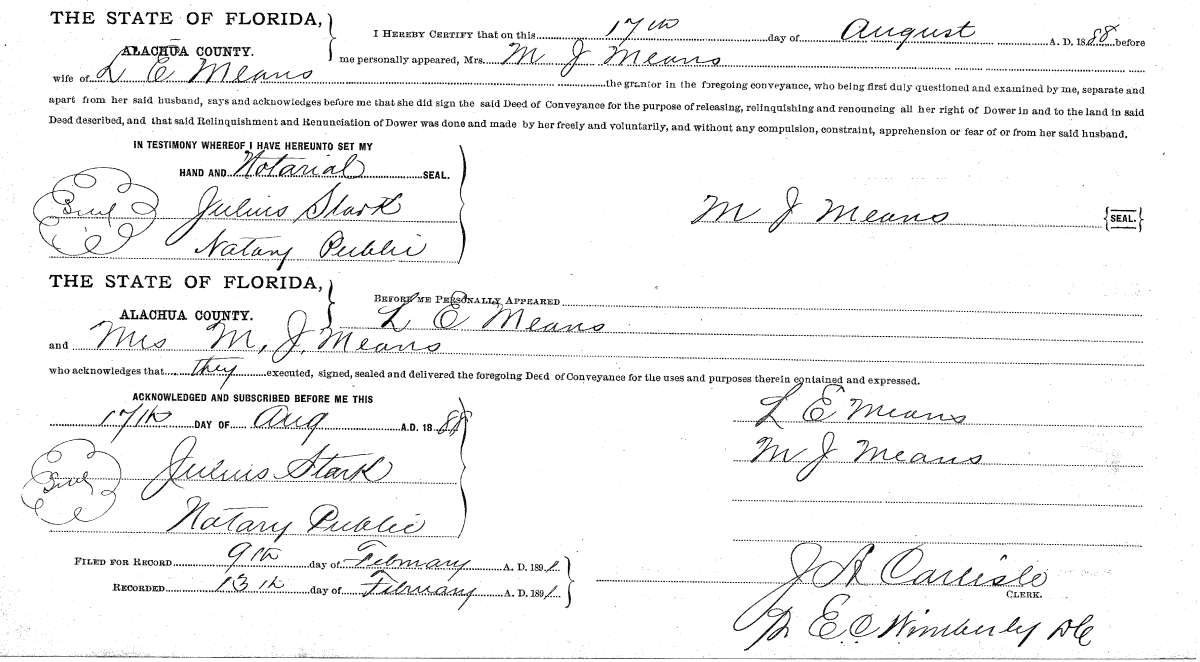 THE STATE OF FLORIDA,
ALACHUA COUNTY.
I HEREBY CERTIFY that on this 17th day of August A. D. 1888 before
me personally appeared, Mrs. M J Means
wife of L E Means the grantor in the foregoing conveyance, who being first duly questioned and examined by me, separate and
apart from her said husband, says and acknowledges before me that she did sign the said Deed of Conveyance for the purpose of releasing, relinquishing and renouncing all her right of Dower in and to the land in said
Deed described, and that said Relinquishment and Renunciation of Dower was done and made by her freely and voluntarily, and without any compulsion, constraint, apprehension or fear of or from her said husband.
IN TESTIMONY WHEREOF I HAVE HEREUNTO SET MY
HAND AND Notarial SEAL.
Seal Julius Stark
Notary Public
M J Means {SEAL.}
THE STATE OF FLORIDA,
ALACHUA COUNTY.
BEFORE ME PERSONALLY APPEARED
L E Means
and Mrs M, J, Means
who acknowledges that they executed, signed, sealed and delivered the foregoing Deed of Conveyance for the uses and purposes therein contained and expressed.
ACKNOWLEDGED AND SUBSCRIBED BEFORE ME THIS
17th DAY OF Aug A.D. 1888
Seal Julius Stark
Notary Public
L E Means
M J Means
FILED FOR RECORD 9th day of February A. D. 1891
RECORDED 13th day of February A. D. 1891
J A Carlisle
CLERK.
E. C Wimberly DC